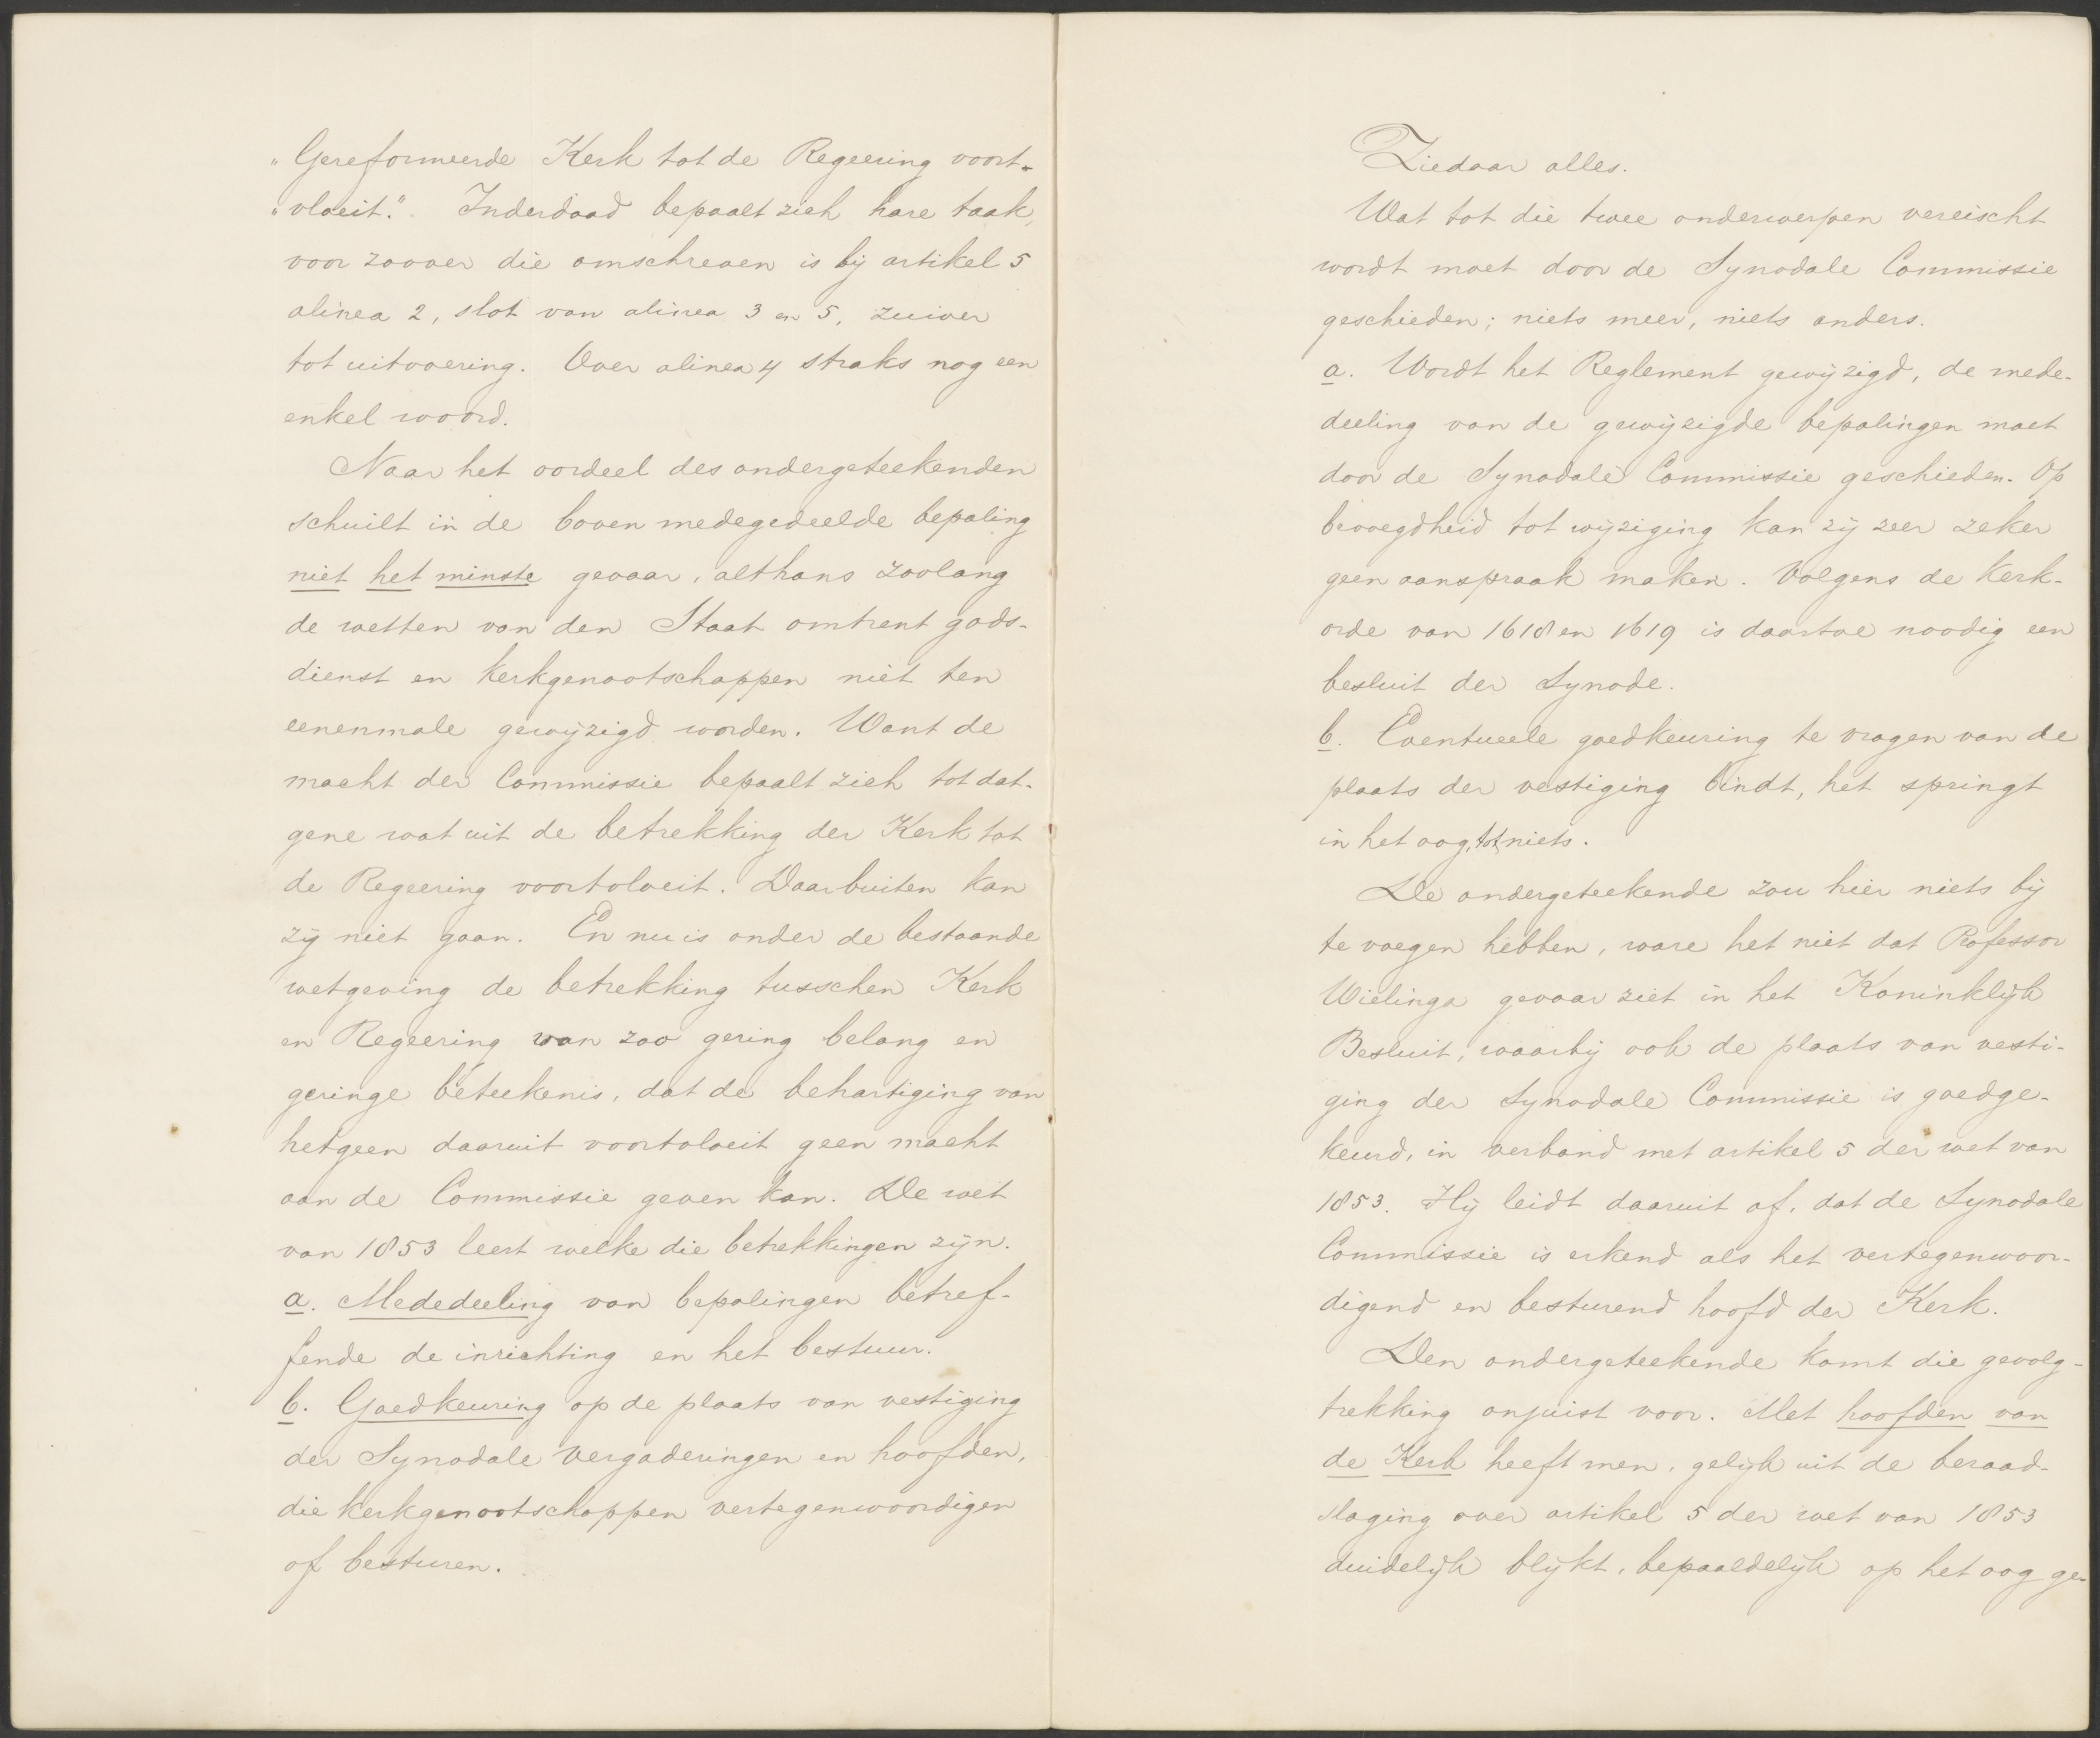 „Gereformeerde Kerk tot de Regeering voort-
„vloeit.” Inderdaad bepaalt zich hare taak,
voor zoover die omschreven is bij artikel 5
alinea 2, slot van alinea 3 en 5, zuiver
tot uitvoering. Over alinea 4 straks nog een
enkel woord.
Naar het oordeel des ondergeteekenden
schuilt in de boven medegedeelde bepaling
niet het minste gevaar, althans zoolang
de wetten van den Staat omtrent gods-
dienst en kerkgenootschappen niet ten
eenenmale gewijzigd worden. Want de
macht der Commissie bepaalt zich tot dat-
gene wat uit de betrekking der Kerk tot
de Regeering voortvloeit. Daarbuiten kan
zij niet gaan. En nu is onder de bestaande
wetgeving de betrekking tusschen Kerk
en Regeering van zoo gering belang en
geringe beteekenis, dat de behartiging van
hetgeen daaruit voortvloeit geen macht
aan de Commissie geven kan. De wet
van 1853 leert welke die betrekkingen zijn.
a. Mededeeling van bepalingen betref-
fende de inrichting en het bestuur.
b. Goedkeuring op de plaats van vestiging
der Synodale vergaderingen en hoofden,
die kerkgenootschappen vertegenwoordigen
of besturen.
Ziedaar alles.
Wat tot die twee onderwerpen vereischt
wordt moet door de Synodale Commissie
geschieden; niets meer, niets anders.
a. Wordt het Reglement gewijzigd, de mede-
deeling van de gewijzigde bepalingen moet
door de Synodale Commissie geschieden. Op
bevoegdheid tot wijziging kan zij zeer zeker
geen aanspraak maken. Volgens de kerk-
orde van 1618 en 1619 is daartoe noodig een
besluit der Synode.
b. Eventueele goedkeuring te vragen van de
plaats der vestiging bindt, het springt
in het oog, tot niets.
De ondergeteekende zou hier niets bij
te voegen hebben, ware het niet dat Professor
Wielinga gevaar ziet in het Koninklijk
Besluit, waarbij ook de plaats van vesti-
ging der Synodale Commissie is goedge-
keurd, in verband met artikel 5 der wet van
1853. Hij leidt daaruit af, dat de Synodale
Commissie is erkend als het vertegenwoor-
digend en besturend hoofd der Kerk.
Den ondergeteekende komt die gevolg-
trekking onjuist voor. Met hoofden van
de Kerk heeft men, gelijk uit de beraad-
slaging over artikel 5 der wet van 1853
duidelijk blijkt, bepaaldelijk op het oog ge-